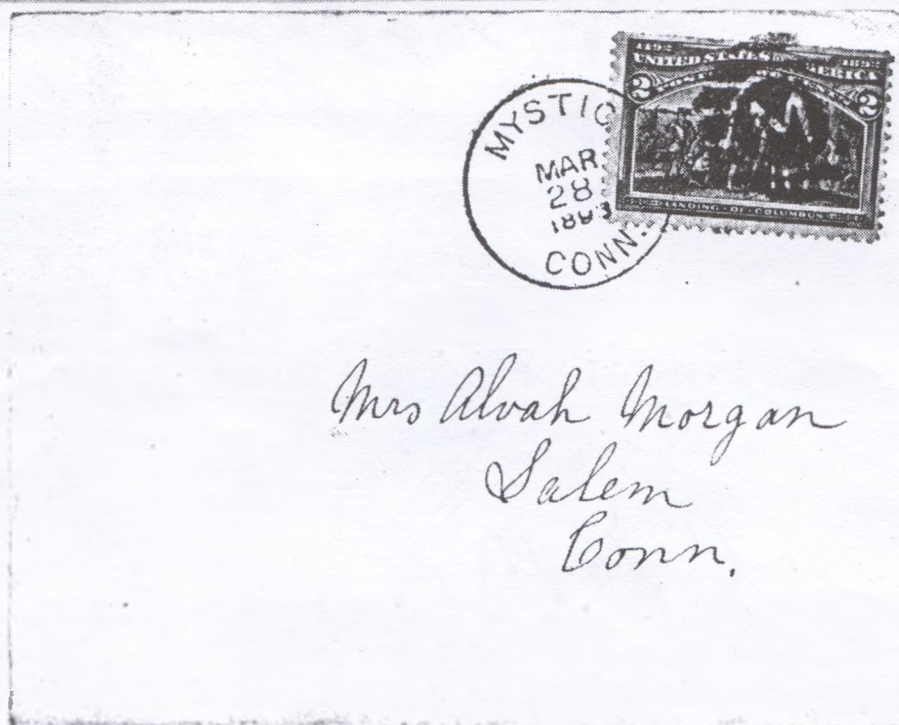 1492 1892
UNITED STATES OF AMERICA
2 2
LANDING OF COLUMBUS
MYSTIC
MAR
28
1893
CONN.
Mrs Alvah Morgan
Salem
Conn.